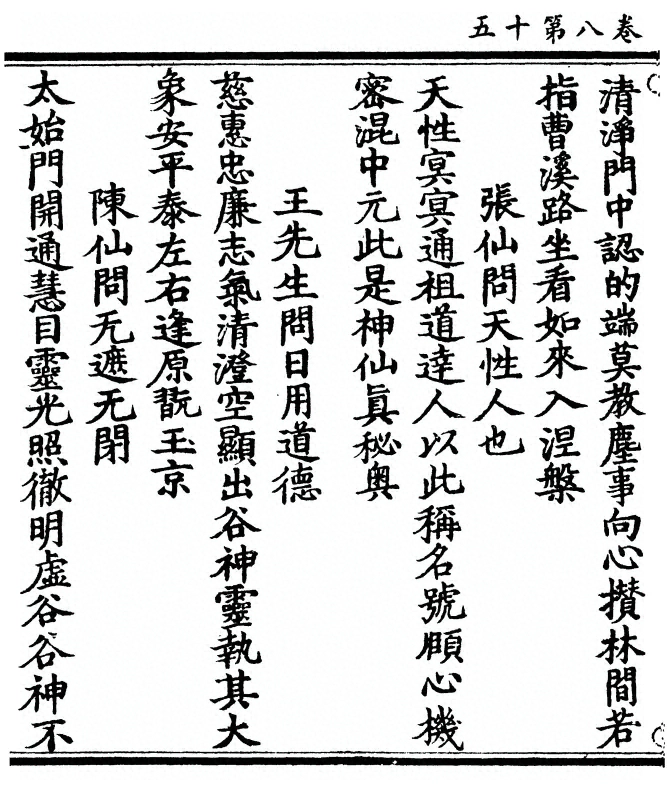 卷八第十五
清淨門中認的端莫教塵事向心攢林間若
指曹溪路坐看如來入涅槃
張仙問天性人也
天性冥冥通祖道達人以此稱名號頋心機
密混中元此是神仙眞秘奧
王先生問日用道德
慈惠忠廉志氣清澄空顯出谷神靈執其大
象安平泰左右逢原翫玉京
陳仙問无遮无閉
太始門開通慧目靈光照徹明虛谷谷神不